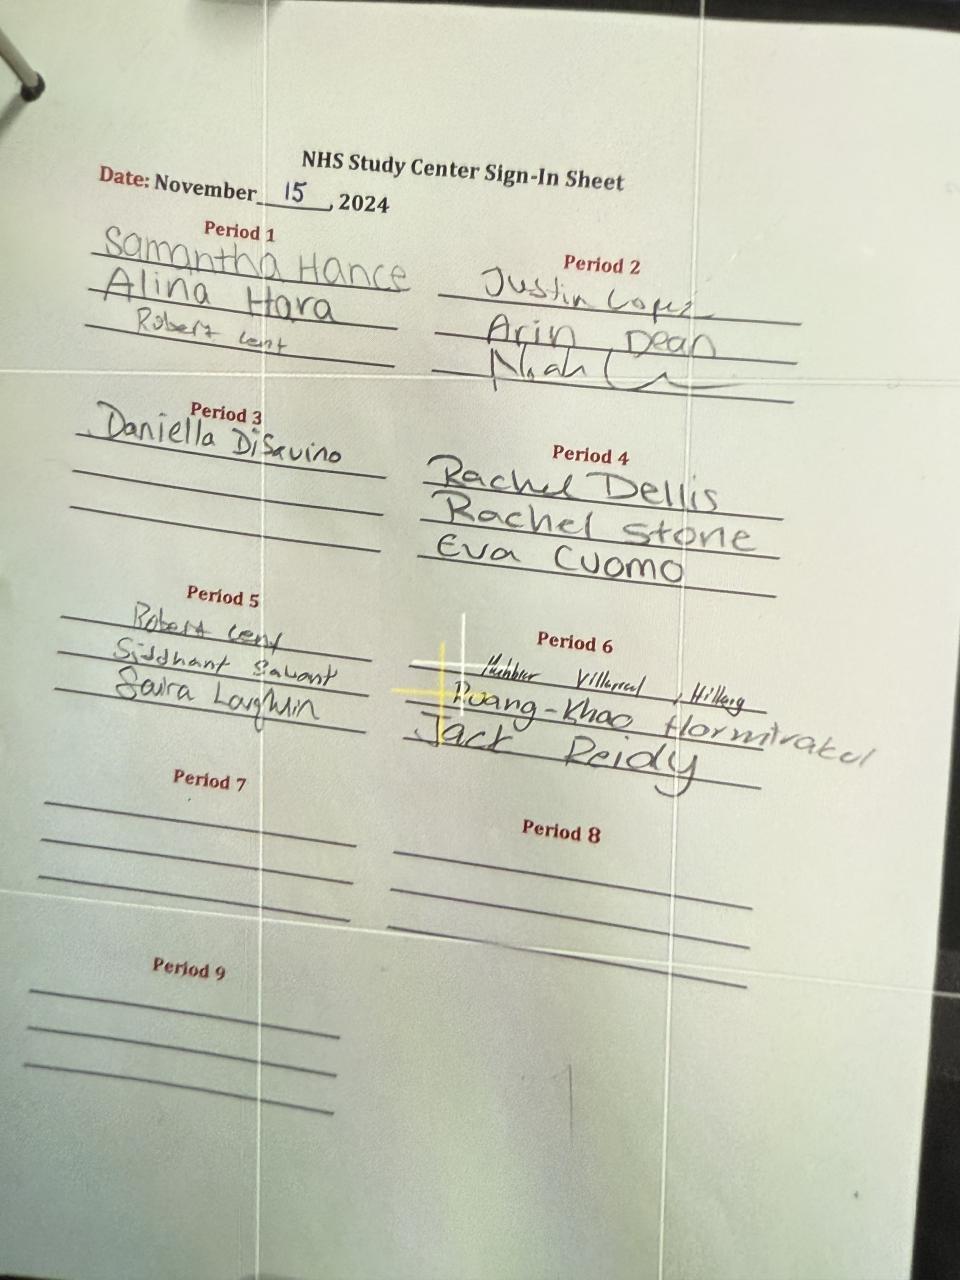 NHS Study Center Sign-In Sheet
Date: November 15, 2024
Period 1
Samantha Hance
Alina Hara
Robert Lent
Period 2
Justin Lopez
Arin Dean
Noah
Period 3
Daniella DiSavino
Period 4
Rachel Dellis
Rachel Stone
Eva Cuomo
Period 5
Robert Lent
Siddhant Sawant
Saira Loughlin
Period 6
Villarreal, Hillary
Puang-Khao Hormtrakul
Jack Reidy
Period 7
Period 8
Period 9